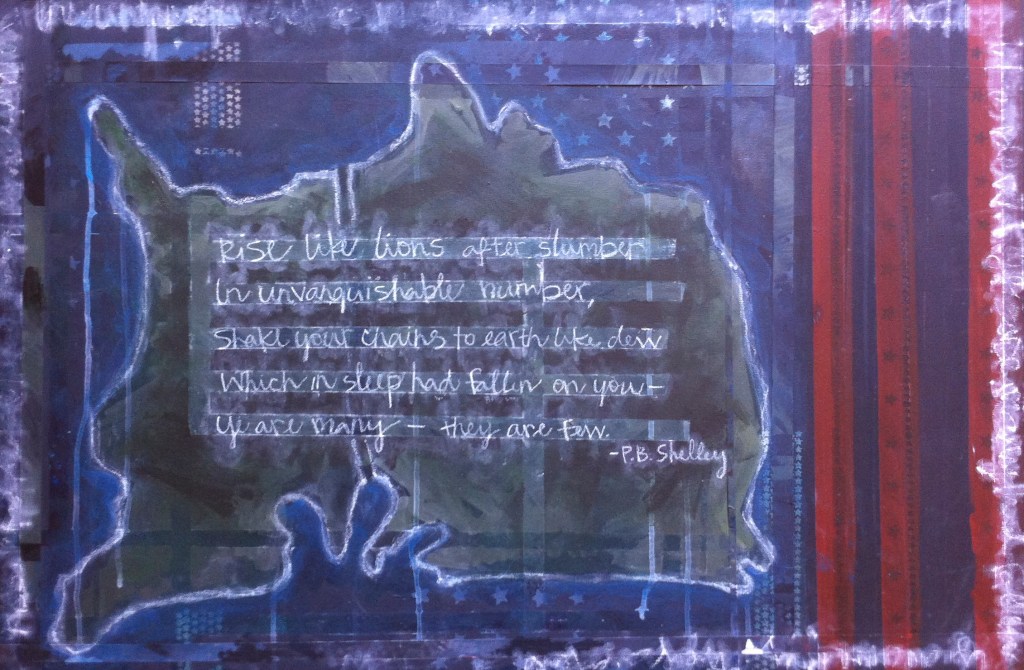 Rise like lions after slumber
In unvanquishable number,
Shake your chains to earth like dew
Which in sleep had fallen on you—
Ye are many — they are few.
-P.B. Shelley